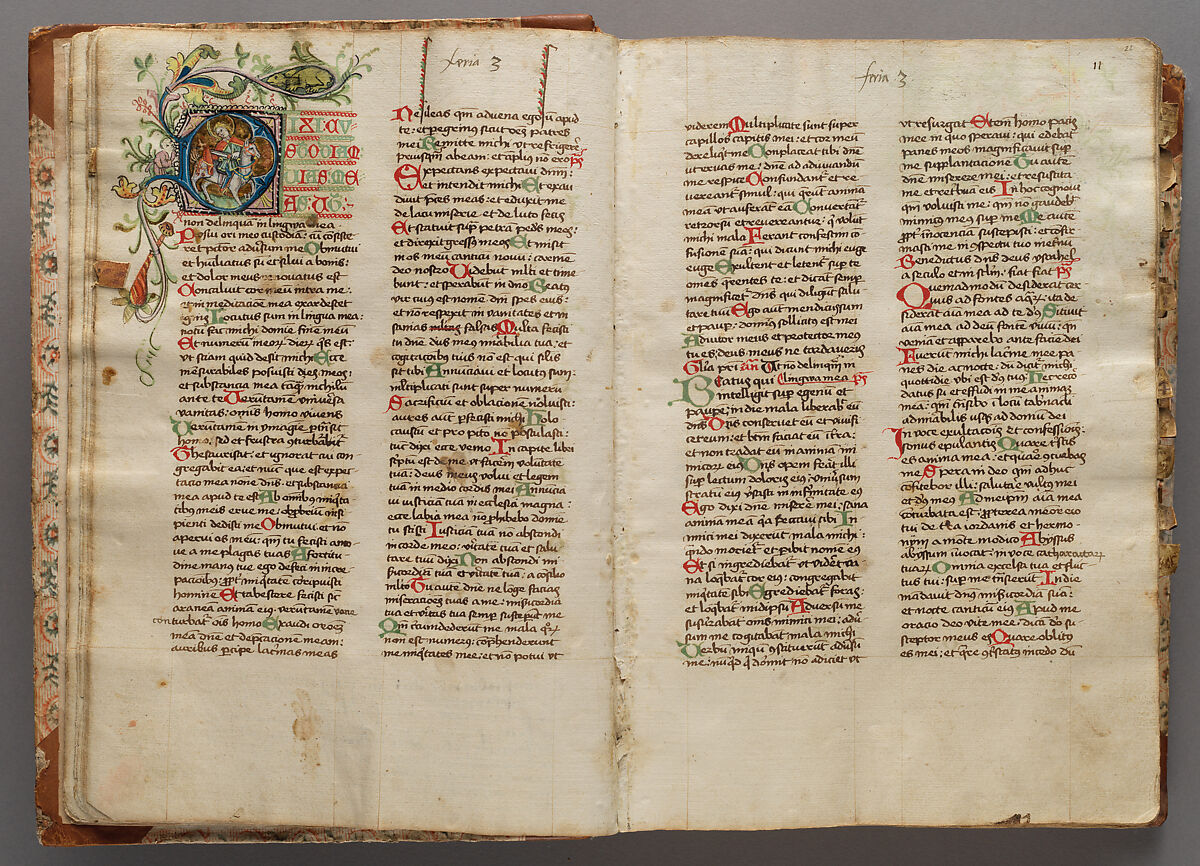 feria 3
DIXI CV
STODIAM
VIAS ME
AS: VT
non delinqua in lingua mea
Posui ori meo custodia: cu cosiste
ret pctor adusum me Obmutui
et huiliatus su et silui a bonis:
et dolor meus renouatus est
Concaluit cor meu intra me:
et in meditacioe mea exardescet
ignis Locutus sum in lingua mea:
notu fac michi domie fine meu
Et numeru meor dier qs est:
vt sciam quid desit michi Ecce
mesurabiles posuisti dies meos:
et substancia mea tamq nichilu
ante te Uerutame vniuersa
vanitas: omis homo viuens
Uerutame in ymagie ptnsit
homo: sed et frustra 9turbabit
Thesaurisat: et ignorat cui con
gregabit ea: et nuc que est expec
tacio mea none dns: et substancia
mea apud te est Ab omibus iniqta
tibus meis erue me: obpbriu insi
pienti dedisti me Obmutui et no
aperui os meu: qm tu fecisti amo
ue a me plagas tuas A fortitu
dine manus tue ego defeci in incre
pacoibus: ppt iniqtatem coripuisti
homine Et tabescere fecisti sic
aranea animam eius: verutame vane
conturbat ois homo Exaudi orocom
mea dne et depcacione meam:
auribus pcipe lacrimas meas
Ne sileas qm aduena ego su apud
te: et pegrinus sicut oes patres
mei Remitte michi vt refrigere
priusqm abeam: et aplius no ero ps
Expectans expectaui dnm:
et intendit michi Et exau
diuit pces meas: et eduxit me
de lacu miserie et de luto fecis
Et statuit sup petra pedes meos:
et direxit gressus meos Et misit
in os meu canticu nouu: carme
deo nostro Uidebut mlti et time
bunt: et sperabut in dno Beatus
vir cuius est nomen dni spes eius:
et no respexit in vanitates et in
sanias falsas Multa fecisti
tu dne deus meus mirabilia tua: et
cogitacoibus tuis no est qui silis
sit tibi Annuciaui et locutus sum:
multiplicati sunt super numeru
Sacrificiu et oblacione noluisti:
aures aut pfecisti michi Holo
caustu et pro pcto no postulasti:
tuc dixi ecce venio In capite libri
scptu est de me vt facere voluntate
tua: deus meus volui et legem
tua in medio cordis mei Annucia
ui iusticiam tua in ecclesia magna:
ecce labia mea no phibebo domie
tu scisti Iusticia tua no abscondi
in corde meo: vitate tua et salu
tare tuu dixi Non abscondi mi
sericordia tua et vitate tua: a cosilio
mlto Tu aute dne ne loge facias
miseracoes tuas a me: misericordia
tua et vitas tua semp susceperut me
Qm circudederut me mala qr
non est numerus: cophenderunt
me iniqtates mee: et no potui vt
feria 3
11
viderem Multiplicate sunt super
capillos capitis mei: et cor meu
dereliqt me Conplaceat tibi dne
vt eruas me: dne ad adiuuandu
me respice Confundant et re
uereant simul: qui qrunt anima
mea vt auferat ea Conuertat
retrorsu et reuereantur: q volut
michi mala Ferant confestim co
fusione sua: qui dicunt michi euge
euge Exultent et letent sup te
omes qrentes te: et dicat semp
magnificet dns qui diligut salu
tare tuu Ego aut mendicus sum
et paup: domius sollicitus est mei
Adiutor meus et protector meus
tu es: deus meus ne tardaueris
Glia pri an Ut no delinqm in
Beatus qui lingwa mea ps
intelligit sup egenu et
paupe: in die mala liberab eu
dns Dns conseruet eu et viuifi
cet eum: et btm faciat eu i tra:
et non tradat eu in anima ini
micor eius Dns opem ferat illi
sup lectum doloris eius: vniusum
stratu eius vsasti in infirmitate eius
Ego dixi dne miserere mei: sana
anima mea qa peccaui tibi In
imici mei dixerut mala michi:
qndo moriet et peribit nome eius
Et si ingrediebat vt videret va
na loqbat cor eius: congregabit
iniqtate sibi Egrediebat foras:
et loqbat in idipsu Aduersu me
susurrabat omis inimici mei: adu
sum me cogitabat mala michi
Uerbu iniqum 9stituerut adusu
me: nuqd q dormit no adiciet vt
vt resurgat Etem homo pacis
mee in quo speraui: qui edebat
panes meos magnificauit sup
me supplantacione Tu aute
dne miserere mei: et resuscita
me et retribua eis In hoc cognoui
qm voluisti me: qm no gaudebit
inimicus meus sup me Me aute
ppt inocenciam suscepisti: et cofir
masti me in cspectu tuo in eternu
Benedictus dns deus ysrahel
a seculo et in sclm: fiat fiat ps
Quemadmodu desiderat cer
uus ad fontes aqr: ita de
siderat aia mea ad te ds Sitiuit
aia mea ad deu fonte viuu: qn
venia et apparebo ante facie dei
Fuerut michi lacrime mee pa
nes die ac nocte: du dicit michi
quottidie vbi est ds tuus Hec reco
datus su et effudi in me anima
mea: qm tnsibo i locu tabnacli
admirabilis vsqs ad domu dei
In voce exultacois et confessiois:
sonus epulantis Quare tstis
es anima mea: et quare 9turbas
me Spera in deo qm adhuc
cofitebor illi: salutare vultus mei
et ds meus Ad meipm aia mea
coturbata est: pterea memor ero
tui de tra iordanis et hermo
nijm a mote modico Abyssus
abyssum iuocat: in voce catharactar
tuar Omnia excelsa tua et fluc
tus tui: sup me tnsierut In die
madauit dnus misericordia sua:
et nocte canticu eius Apud me
oracio deo vite mee: dica do su
sceptor meus es Quare oblitus
es mei: et qre 9tristatus incedo du